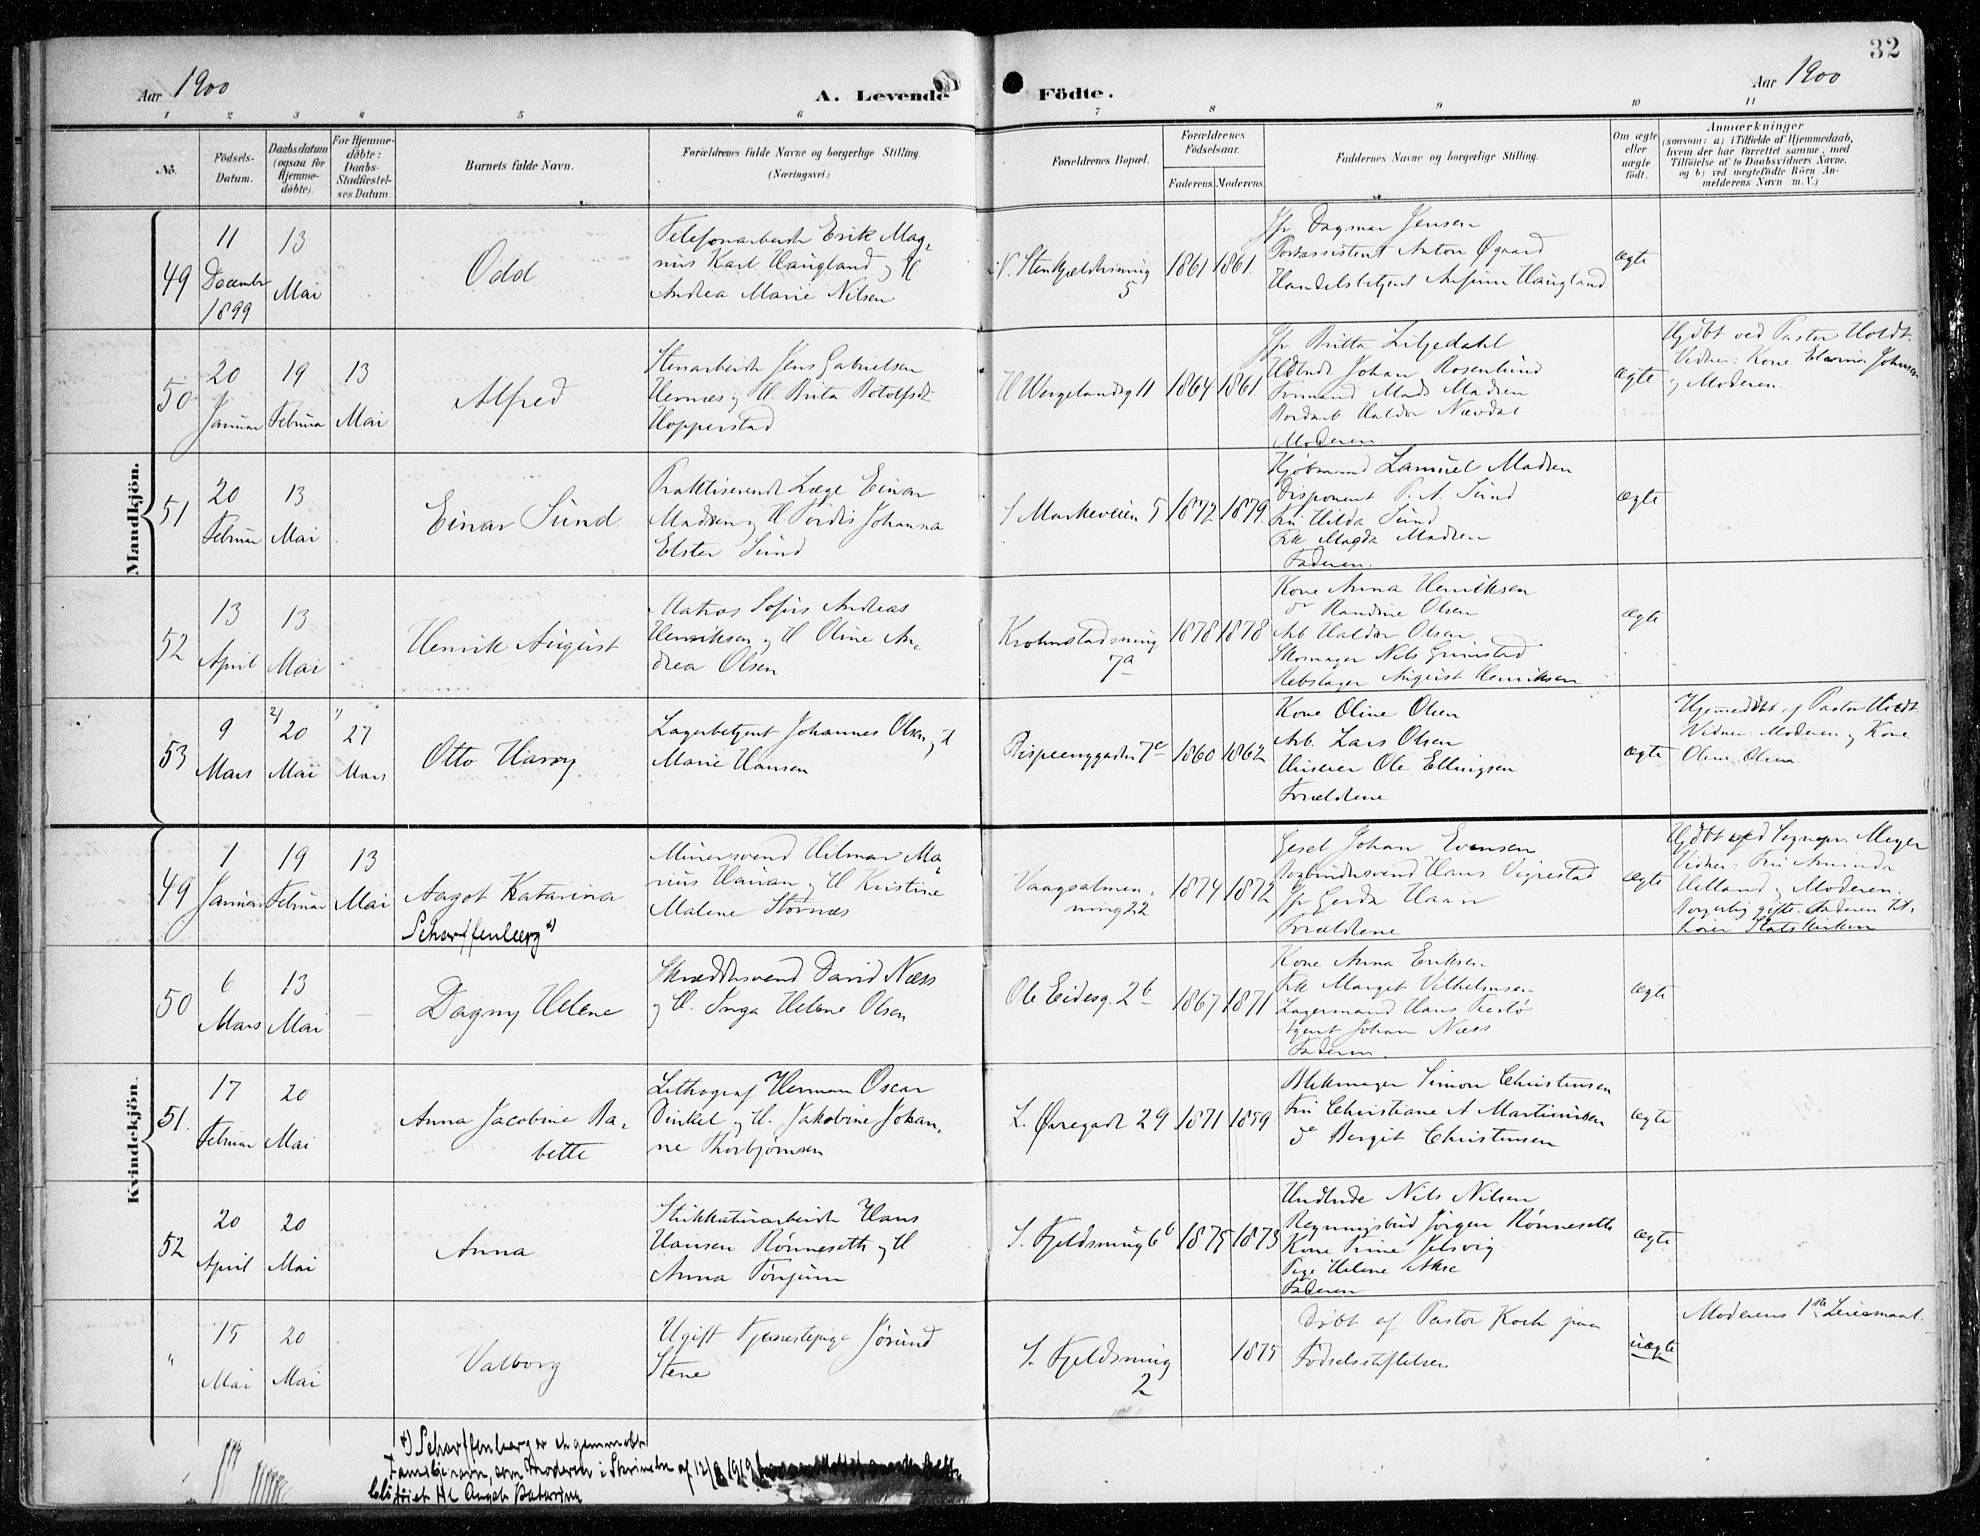 32
Aar 1900
A. Levende Födte.
Aar 1900
1 2 3 4 5 6 7 8 9 10 11
No.
Födsels-
Datum.
Daabsdatum
(ogsaa for
Hjemme-
döbte).
For Hjemme-
döbte:
Daabs-
Stadfæstel-
ses Datum.
Barnets fulde Navn.
Forældrenes fulde Navne og borgerlige Stilling.
(Næringsvei.)
Forældrenes Bopæl.
Forældrenes
Födselsaar.
Faderens. Moderens.
Faddernes Navne og borgerlige Stilling.
Om ægte
eller
uægte
födt.
Anmærkninger
(saasom: a) i Tilfælde af Hjemmedaab,
hvem der har forrettet samme, med
Tilföielse af to Daabsvidners Navne,
og b) ved uægtefödte Börn An-
melderens Navn m. V.)
Mandkjön.
49
11
December
1899
13
Mai
Odd
Telefonarbeider Erik Mag-
nus Karl Haugland og H
Andrea Marie Nilsen
N. Stenkjeldersmug
5
1861 1861
Jfr Dagmar Jensen
Postassistent Anton Øgaard
Handelsbetjent Arfinn Haugland
ægte
50
20
Januar
19
Februar
13
Mai
Alfred
Stenarbeider Jens Gabrielsen
Hernæs og H. Brita Botolfsdr
Hopperstad
H Wergelandsg 11
1864 1861
Jfr. Britta Liljedahl
Johan Rosenlund
Formand Mads Madsen
Haldor Nævdal
Moderen
ægte
Hjdbt ved Pastor Holdt.
Vidner: Kone Elevina Johnsen
og Moderen.
51
20
Februar
13
Mai
Einar Sund
Praktiserende Læge Einar
Madsen og H Tordis Johanna
Elster Sund
S Markeveien 5
1872 1879
Kjøbmand Samuel Madsen
Disponent P. A. Sund
Fru Hilda Sund
Frk Magda Madsen
Faderen.
ægte
52
13
April
13
Mai
Henrik August
Matros Sofus Andreas
Henriksen og H Oline An-
drea Olsen
Krohnstadsmug
7a
1878 1878
Kone Anna Henriksen
do Randine Olsen
Arb Haldor Olsen
Skomager Nils Grimstad
Rebslager August Henriksen
ægte
53
9
Mars
2) 20
Mai
1) 27
Mars
Otto Harry
Lagerbetjent Johannes Olsen og H
Marie Hansen
Bispeenggaden 7c
1860 1862
Kone Oline Olsen
Arb. Lars Olsen
Ole Ellingsen
Forældrene
ægte
Hjemmedøbt af Pastor Holdt
Vidner: Moderen og Kone
Oline Olsen
Kvindekjön.
49
1
Januar
19
Februar
13
Mai
Aagot Katarina
Scharffenberg *)
Murersvend Hilmar Ma-
rius Haaan og H Kristine
Malene Stornæs
Vaagsalmen-
ning 22
1874 1872
Gesel Johan Evensen
Bogbindersvend Hans Vigrestad
Jfr Gerda Haan
Forældrene
ægte
Hjdbt ved Sognepr. Meyer
Vidner: Fru Amunda
Helland og Moderen.
Borgerlig gifte. Faderen til-
hører Statskirken
50
6
Mars
13
Mai
Dagny Helene
Skræddersvend David Næss
og H. Inga Helene Olsen
Ole Eidesg. 2b
1867 1871
Kone Anna Eriksen
Frk Margit Vilhelmsen
Lagermand Hans
Agent Johan Næss
Faderen.
ægte
51.
17
Februar
20
Mai
Anna Jacobine Ba-
bette
Lithograf Herman Oscar
Dinkel og H. Jakobine Johan-
ne Thorbjørnsen
L. Øvregade 29
1871 1859
Blikmager Simon Christensen
Fru Christiane A Martinusen
do Bergit Christensen
ægte
52
20
April
20
Mai
Anna
Stukkaturarbeider Hans
Hansen Rønneseth og H
Anna Tønjum
S. Fjeldsmug 6b
1875 1873
Nils Nilsen
Regningsbud Jørgen Rønneseth
Kone Trine Jelsvig
Pige Helene Akse
Faderen
ægte
"
15
Mai
20
Mai
Valborg
Ugift Tjenestepige Jørund
Stene
S. Fjeldsmug
2
1875
Døbt af Pastor Koch paa
Fødselsstiftelsen
uægte
Moderens 1ste Leiermaal.
*) Scharffenberg er et gammelt
Familienavn, som Moderen i Skrivelse af 12/8 1919
tilføiet til Aagot Katarina